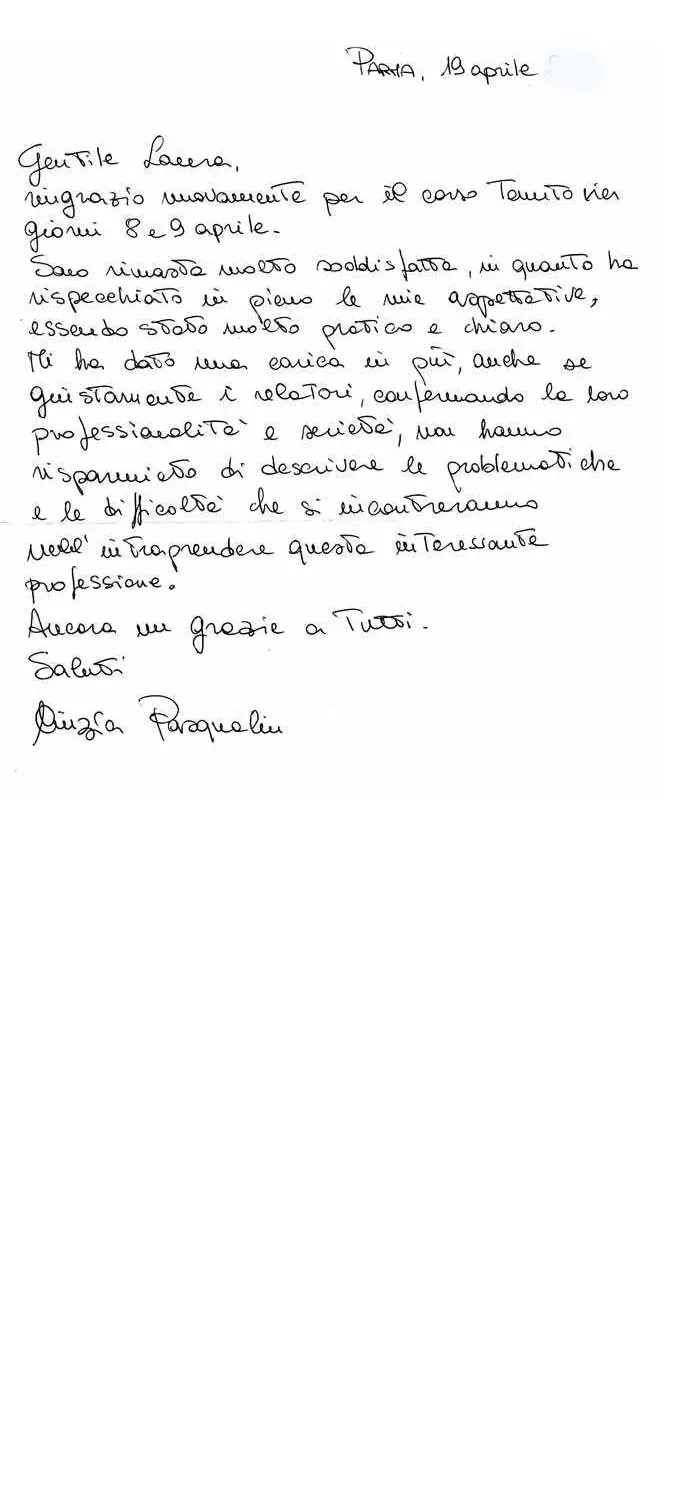 PARMA, 19 aprile
Gentile Laura,
ringrazio nuovamente per il corso Tenuto nei
giorni 8 e 9 aprile.
Sono rimasta molto soddisfatta, in quanto ha
rispecchiato in pieno le mie aspettative,
essendo stato molto pratico e chiaro.
Mi ha dato una carica in più, anche se
giustamente i relatori, confermando la loro
professionalità e serietà, non hanno
risparmiato di descrivere le problematiche
e le difficoltà che si incontreranno
nell' intraprendere questa interessante
professione.
Ancora un grazie a Tutti.
Saluti
Cinzia Pasqualin